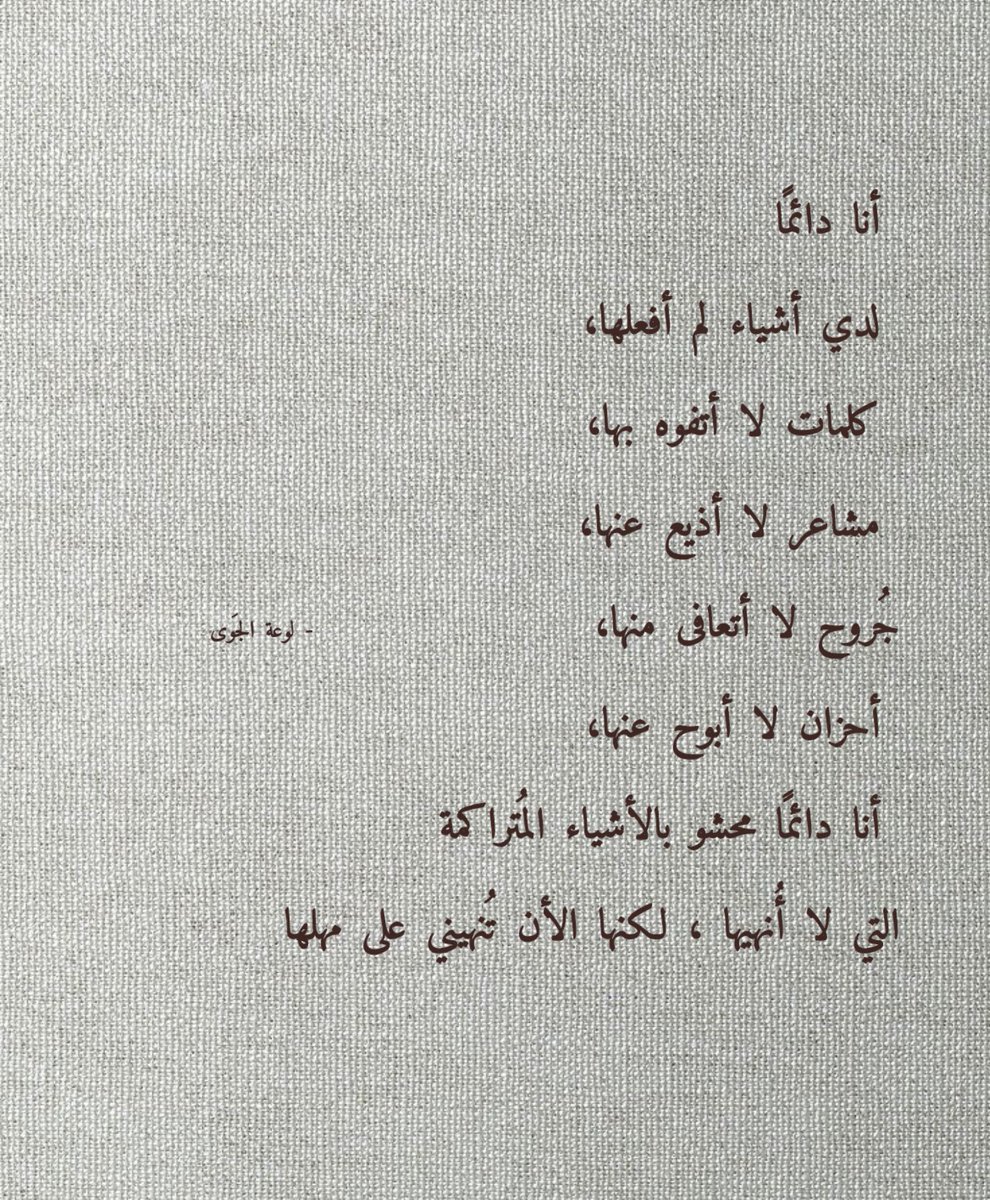 أنا دائمًا
لدي أشياء لم أفعلها،
كلمات لا أتفوه بها،
مشاعر لا أذيع عنها،
جُروح لا أتعافى منها،
- لوعة الجَوى
أحزان لا أبوح عنها،
أنا دائمًا محشو بالأشياء المُتراكمة
التي لا أُنهيها ، لكنها الأن تُنهيني على مهلها